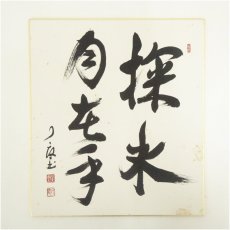 掬水
月在手